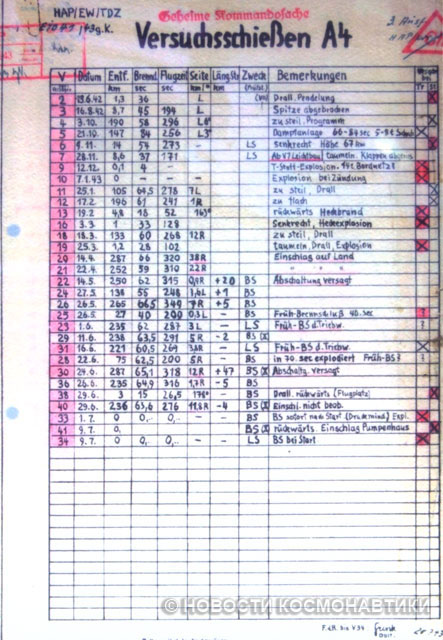 HAP/EW/TDZ
Geheime Kommandosache
Versuchsschießen A4
V Datum Entf. Brennd. Flugzeit Seite Längstr. Zweck Bemerkungen
km sec sec km km
2 13.6.42 1,3 36 Drall, Pendelung
3 16.8.42 8,7 45 194 L Spitze abgebrochen
4 3.10. 190 58 296 zu steil, Programm
5 21.10. 147 84 256 Dampfanlage 60-84 sec
6 9.11. 14 54 273 - LS senkrecht Höhe 67 km
7 28.11. 8,6 37 171 LS taumeln, Klappen
9 12.12. 0,1 4 -
10 7.1.43 0 - - Explosion bei Zündung
11 25.1. 105 64,5 278 7L zu steil, Drall
12 17.2. 196 61 247 1R zu flach
13 19.2. 4,8 18 52 rückwärts Heckbrand
16 3.3. 1 33 128 Senkrecht, Heckexplosion
18 18.3. 133 60 268 12R zu steil, Drall
19 25.3. 1,2 28 102 taumeln, Drall, Explosion
20 14.4. 287 66 320 38R Einschlag auf Land
21 22.4. 252 59 310 22R " " "
22 14.5. 250 62 315 +20 BS Abschaltung versagt
24 27.5. 138 55 248 +1 BS
26 26.5. 265 66,5 349 7R +5 BS
25 26.5. 27 40 200 0,3L - BS Früh-Brennschluß 40. sec
23 1.6. 235 62 287 3L - LS Früh-BS d. Trichw.
29 11.6. 238 63,5 291 5R -2 BS
31 16.6. 221 60,5 264 - LS Früh-BS d. Trichw.
28 22.6. 75 62,5 200 5R - BS in 70. sec explodiert Früh-BS?
30 24.6. 287 65,1 318 12R +47 BS Abschaltg. versagt
36 26.6. 235 64,9 316 1,7R -5 BS
38 29.6. 3 15 26,5 - BS Drall, rückwärts (Flugplatz)
40 29.6. 236 63,6 276 11,8R -4 BS Einschl. nicht beob.
33 1.7. 0 0,.. 0,.. - - BS BS sofort nach Start Expl.
41 9.7. 0, BS rückwärts. Einschlag Pumpenhaus
34 9.7. 0 0,.. 0,.. - - LS BS bei Start
© НОВОСТИ КОСМОНАВТИКИ